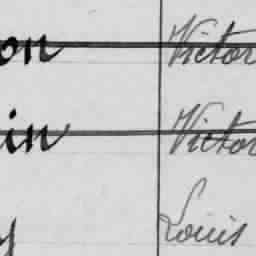 on Victor
in Victor
y Louis